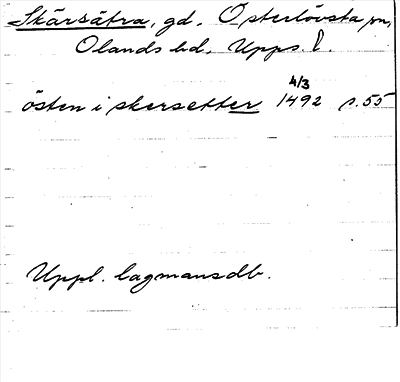 Skärsätra, gd. Österlövsta sn,
Olands hd. Upps. l.
östen i skersetter 4/3 1492 s. 55
Uppl. lagmansdb.